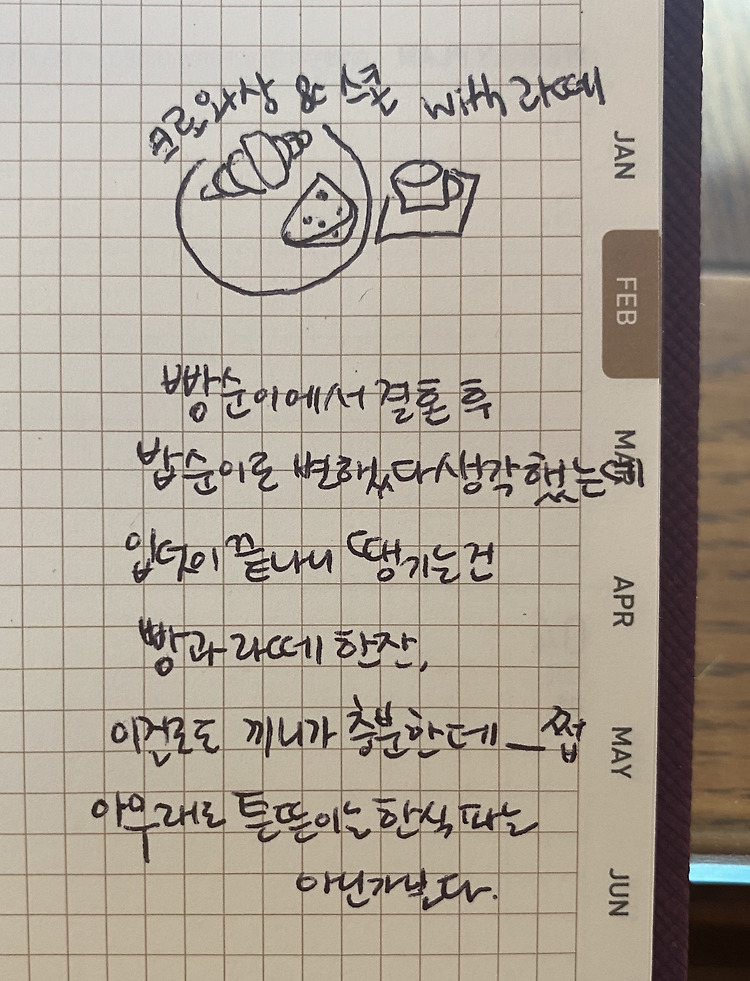 크로와상 & 스콘 with 라떼
JAN
FEB
빵순이에서 결혼 후
MAR
밥순이로 변했다 생각했는데
입덧이 끝나니 땡기는건
APR
빵과 라떼 한잔,
이걸로도 끼니가 충분한데 _ 쩝
MAY
아무래도 튼튼이는 한식파는
JUN
아닌가보다.